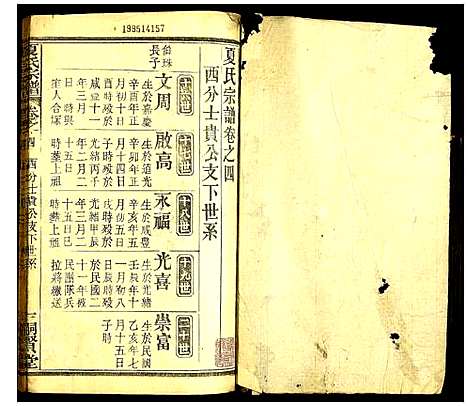 199514157
夏氏宗譜卷之四
西分士貴公支下世系
長子
文周
生於嘉慶
辛酉年正
月初七日
子時殁於
咸豐十一
年三月二
日時與
室人合塚
啟高
生於道光
辛卯年正
月十四日
子時殁於
光緒丙午
年三月
十五日
時葬上祖
十八世
永福
生於咸豐
辛亥年五
月初五日
戌時殁於
光緒甲辰
年三月二
十五日巳
時葬上祖
十九世
光喜
生於光緒
壬辰年十
一月初八
日辰時殁
於民國二
十一年被
民團隊兵
拉將爆送
崇富
生於民國
乙亥年七
月十五日
子時
夏氏宗譜
卷之四
西分士貴公支下世系
一
嗣賢堂